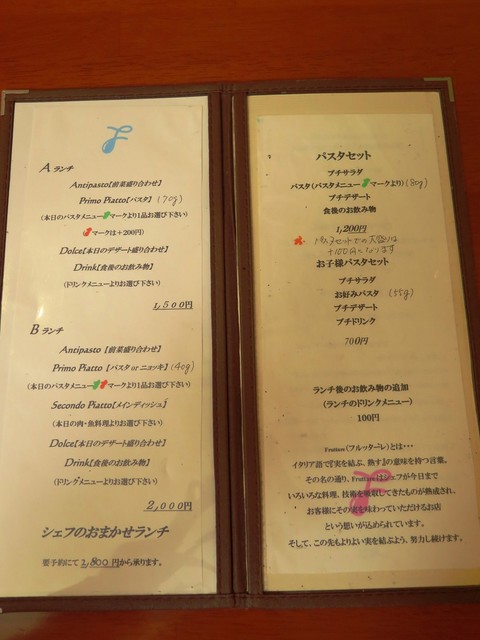 A ランチ
Antipasto【前菜盛り合わせ】
Primo Piatto【パスタ】 (70g)
(本日のパスタメニュー マークより1品お選び下さい)
マークは+200円)
Dolce【本日のデザート盛り合わせ】
Drink【食後のお飲み物】
(ドリンクメニューよりお選び下さい)
1,500円
B ランチ
Antipasto 【前菜盛り合わせ】
Primo Piatto 【パスタ or ニョッキ】 (40g)
(本日のパスタメニュー マークより1品お選び下さい)
Secondo Piatto【メインディッシュ】
(本日の肉・魚料理よりお選び下さい)
Dolce【本日のデザート盛り合わせ】
Drink【食後のお飲み物】
(ドリンクメニューよりお選び下さい)
2,000円
シェフのおまかせランチ
要予約にて 2,800円から承ります。
パスタセット
プチサラダ
パスタ(パスタメニュー マークより) (80g)
プチデザート
食後のお飲み物
1,200円
パスタセットでの大盛りは
+100円になります
お子様パスタセット
プチサラダ
お好みパスタ (55g)
プチデザート
プチドリンク
700円
ランチ後のお飲み物の追加
(ランチのドリンクメニュー)
100円
Fruttare (フルッターレ)とは・・・
イタリア語で『実を結ぶ、熟す』の意味を持つ言葉。
その名の通り、Fruttareはシェフが今日まで
いろいろな料理、技術を吸収してきたものが熟成され、
お客様にその実を味わっていただけるお店
という想いが込められています。
そして、この先もよりよい実を結ぶよう、努力し続けます。